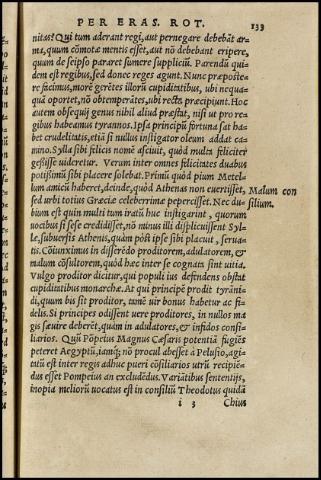 PER ERAS. ROT. 133
nitas? Qui tum aderant regi, aut pernegare debebāt ar-
ma, quum cōmotæ mentis esset, aut nō debebant eripere,
quum de seipso pararet sumere supplicũ. Parendũ qui-
dem est regibus, sed donec reges agunt. Nunc præposte-
re facimus, more gerētes illorũ cupiditatibus, ubi nequa-
quā oportet, nō obtemperātes, ubi recta præcipiunt. Hoc
autem obsequij genus nihil aliud præstat, nisi ut pro re-
gibus habeamus tyrannos. Ipsa principũ fortuna sat ha-
bet crudelitatis, etiā si nullus instigator oleum addat ca-
mino. Sylla sibi felicis nomē asciuit, quòd multa feliciter
gessisse uideretur. Verum inter omnes felicitates duabus
potißimũ sibi placere solebat. Primũ quòd pium Metel-
lum amicũ haberet, deinde, quòd Athenas non euertisset, Malum con
sed urbi totius Græciæ celeberrimæ pepercisset. Nec du- silium.
bium est quin multi tum iratũ huc instigarint, quorum
uocibus si sese credidisset, nō minus illi displicuissent Syl-
læ, subuersis Athenis, quàm pòst ipse sibi placuit, serua-
tis. Cōiunximus in disserēdo proditorem, adulatorem, &
malum cōsultorem, quòd hæc inter se cognata sint uitia.
Vulgo proditor dicitur, qui populi ius defendens obstat
cupiditatibus monarchæ. At qui principē prodit tyran-
di, quum bis sit proditor, tamē uir bonus habetur ac fi-
delis. Si principes odissent uere proditores, in nullos ma
gis sæuire deberēt, quàm in adulatores, & infidos consi-
liarios. Quũ Pōpeius Magnus Cæsaris potentiā fugiēs
peteret Aegyptũ, iamq́; nō procul abesset à Pelusio, agi-
tatũ est inter regis adhuc pueri cōsiliarios utrũ recipiē-
dus esset Pompeius an excludēdus. Variātibus sententijs,
inopia meliorũ uocatus est in consiliũ Theodotus quidā
i 3 Chius